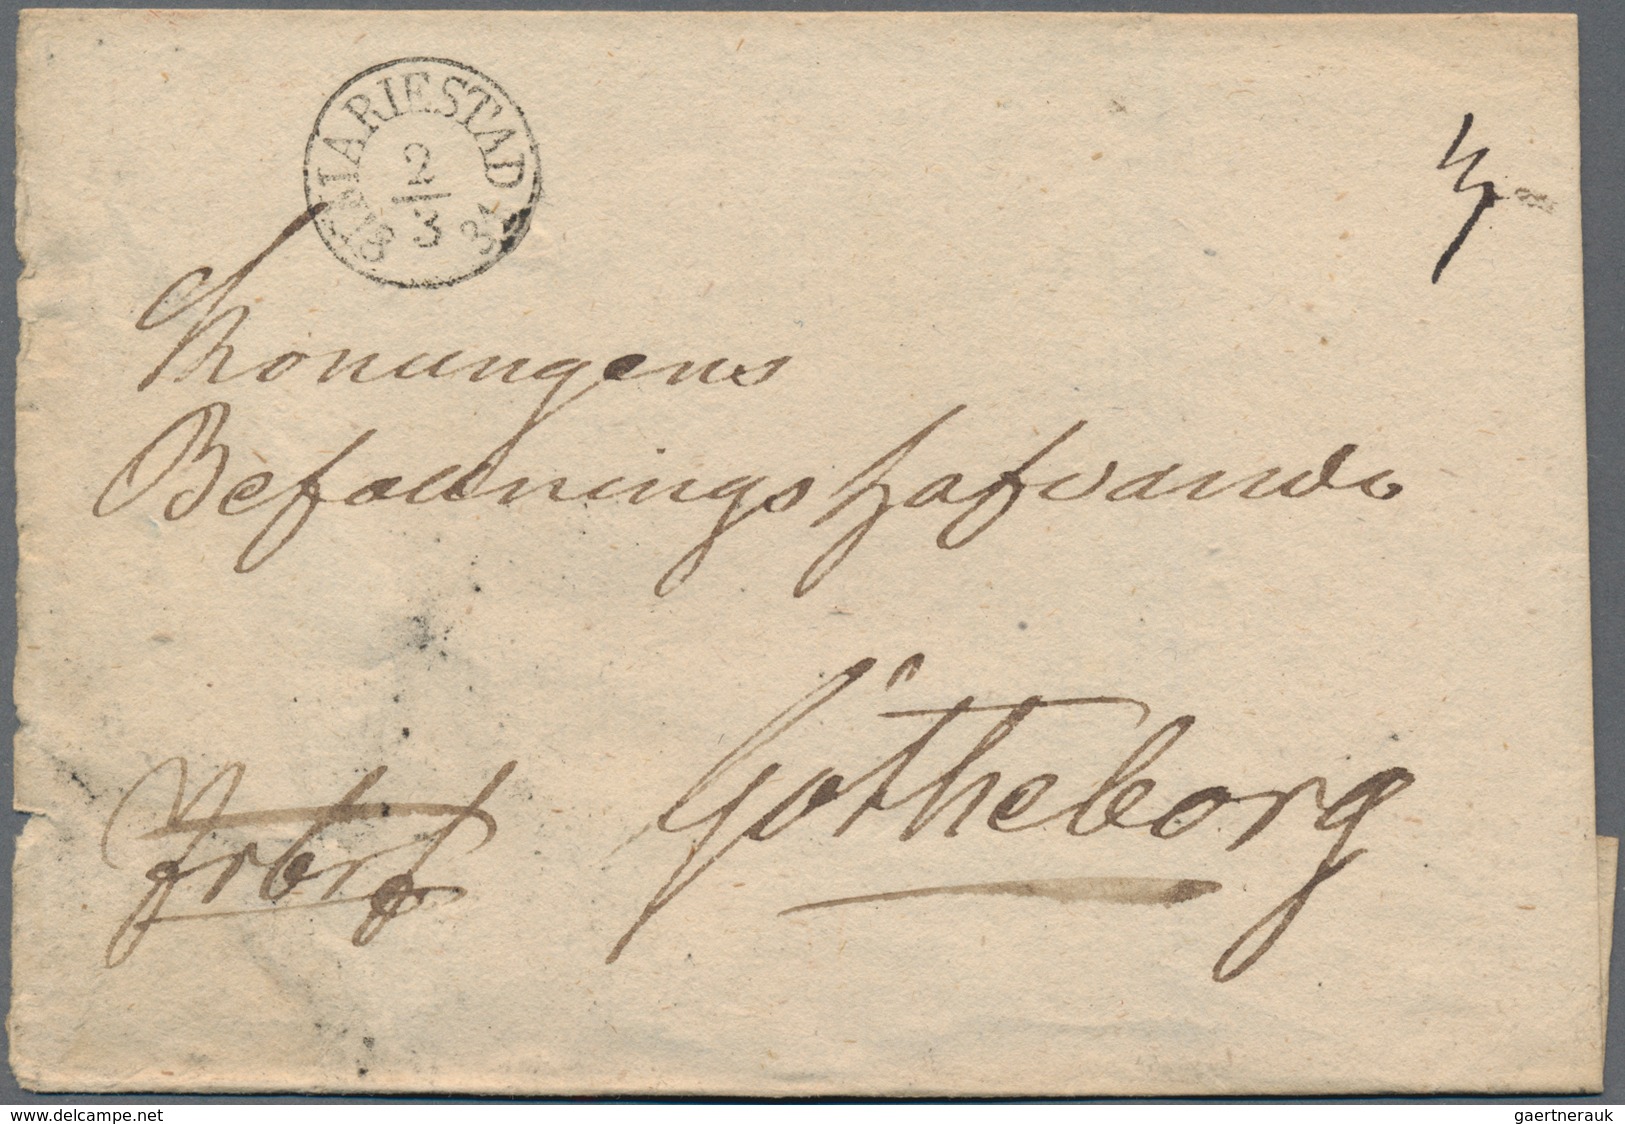 MARIESTAD
2
3
Konungens
Befallningshafvande
Götheborg
www.delcampe.net
gaertnerauk